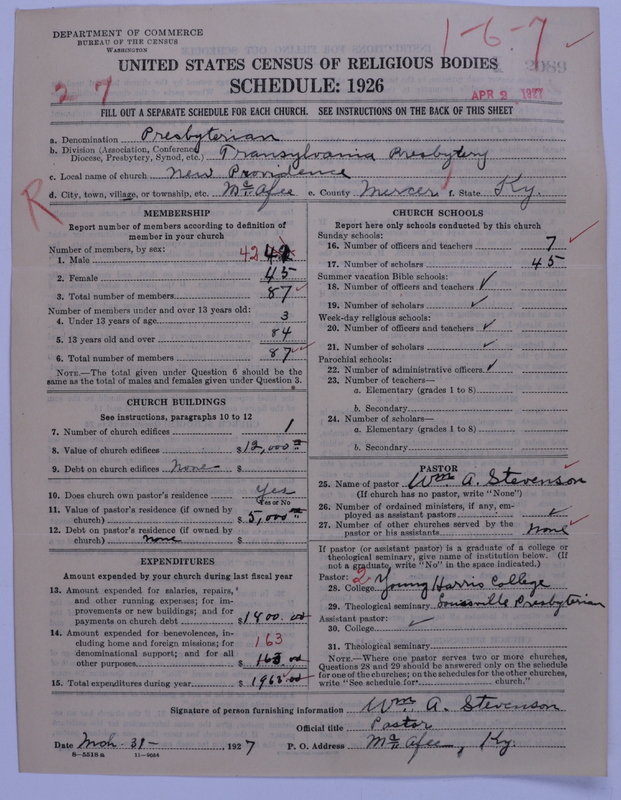 DEPARTMENT OF COMMERCE
BUREAU OF THE CENSUS
WASHINGTON
1-6-7
UNITED STATES CENSUS OF RELIGIOUS BODIES
2089
SCHEDULE: 1926
2 7
APR 2 1927
FILL OUT A SEPARATE SCHEDULE FOR EACH CHURCH. SEE INSTRUCTIONS ON THE BACK OF THIS SHEET
a. Denomination Presbyterian
b. Division (Association, Conference, Diocese, Presbytery, Synod, etc.) Transylvania Presbytery
c. Local name of church New Providence
d. City, town, village, or township, etc. McAfee e. County Mercer f. State Ky.
R
MEMBERSHIP
Report number of members according to definition of
member in your church
Number of members, by sex:
1. Male 42
2. Female 45
3. Total number of members 87
Number of members under and over 13 years old:
4. Under 13 years of age 3
5. 13 years old and over 84
6. Total number of members 87
NOTE.—The total given under Question 6 should be the
same as the total of males and females given under Question 3.
CHURCH BUILDINGS
See instructions, paragraphs 10 to 12
7. Number of church edifices 1
8. Value of church edifices $12,000.00
9. Debt on church edifices None $
10. Does church own pastor's residence Yes
Yes or No
11. Value of pastor's residence (if owned by
church) $5,000.00
12. Debt on pastor's residence (if owned by
church) None $
EXPENDITURES
Amount expended by your church during last fiscal year
13. Amount expended for salaries, repairs,
and other running expenses; for im-
provements or new buildings; and for
payments on church debt $1800.00
14. Amount expended for benevolences, in-
cluding home and foreign missions; for
denominational support; and for all
other purposes 163 $163.00
15. Total expenditures during year $1963.00
CHURCH SCHOOLS
Report here only schools conducted by this church
Sunday schools:
16. Number of officers and teachers 7
17. Number of scholars 45
Summer vacation Bible schools:
18. Number of officers and teachers ✓
19. Number of scholars ✓
Week-day religious schools:
20. Number of officers and teachers ✓
21. Number of scholars ✓
Parochial schools:
22. Number of administrative officers ✓
23. Number of teachers—
a. Elementary (grades 1 to 8)
b. Secondary
24. Number of scholars—
a. Elementary (grades 1 to 8)
b. Secondary
PASTOR
25. Name of pastor Wm A. Stevenson
(If church has no pastor, write "None")
26. Number of ordained ministers, if any, em-
ployed as assistant pastors ✓
27. Number of other churches served by the
pastor or his assistants None
If pastor (or assistant pastor) is a graduate of a college or
theological seminary, give name of institution below. (If
not a graduate, write "No" in the space indicated.)
Pastor: 2
28. College Young Harris College
29. Theological seminary Louisville Presbyterian
Assistant pastor:
30. College ✓
31. Theological seminary
NOTE.—Where one pastor serves two or more churches,
Questions 28 and 29 should be answered only on the schedule
for one of the churches; on the schedules for the other churches,
write "See schedule for church."
Signature of person furnishing information Wm. A. Stevenson
Official title Pastor
Date Mch. 31- , 1927 P. O. Address McAfee, Ky.
8-5518 a 11-9054